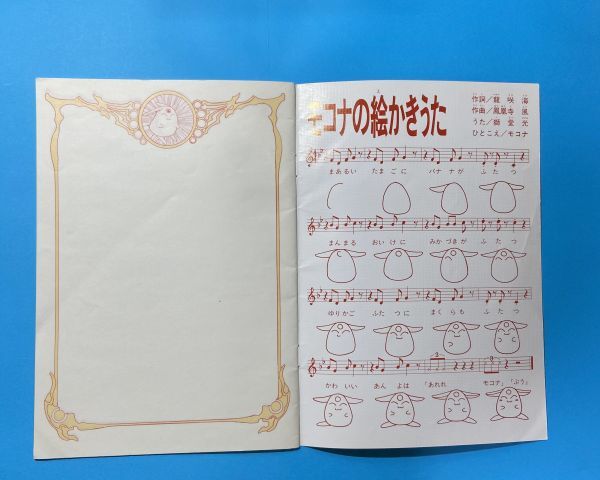 モコナの絵かきうた
作詞／龍咲 海
作曲／鳳凰寺 風
うた／獅堂 光
ひとこえ／モコナ
まあるい たまごに バナナが ふたつ
まんまる おいけに みかづきが ふたつ
ゆりかご ふたつに まくらも ふたつ
かわいい あんよは 「あれれ モコナ」「ぷう」